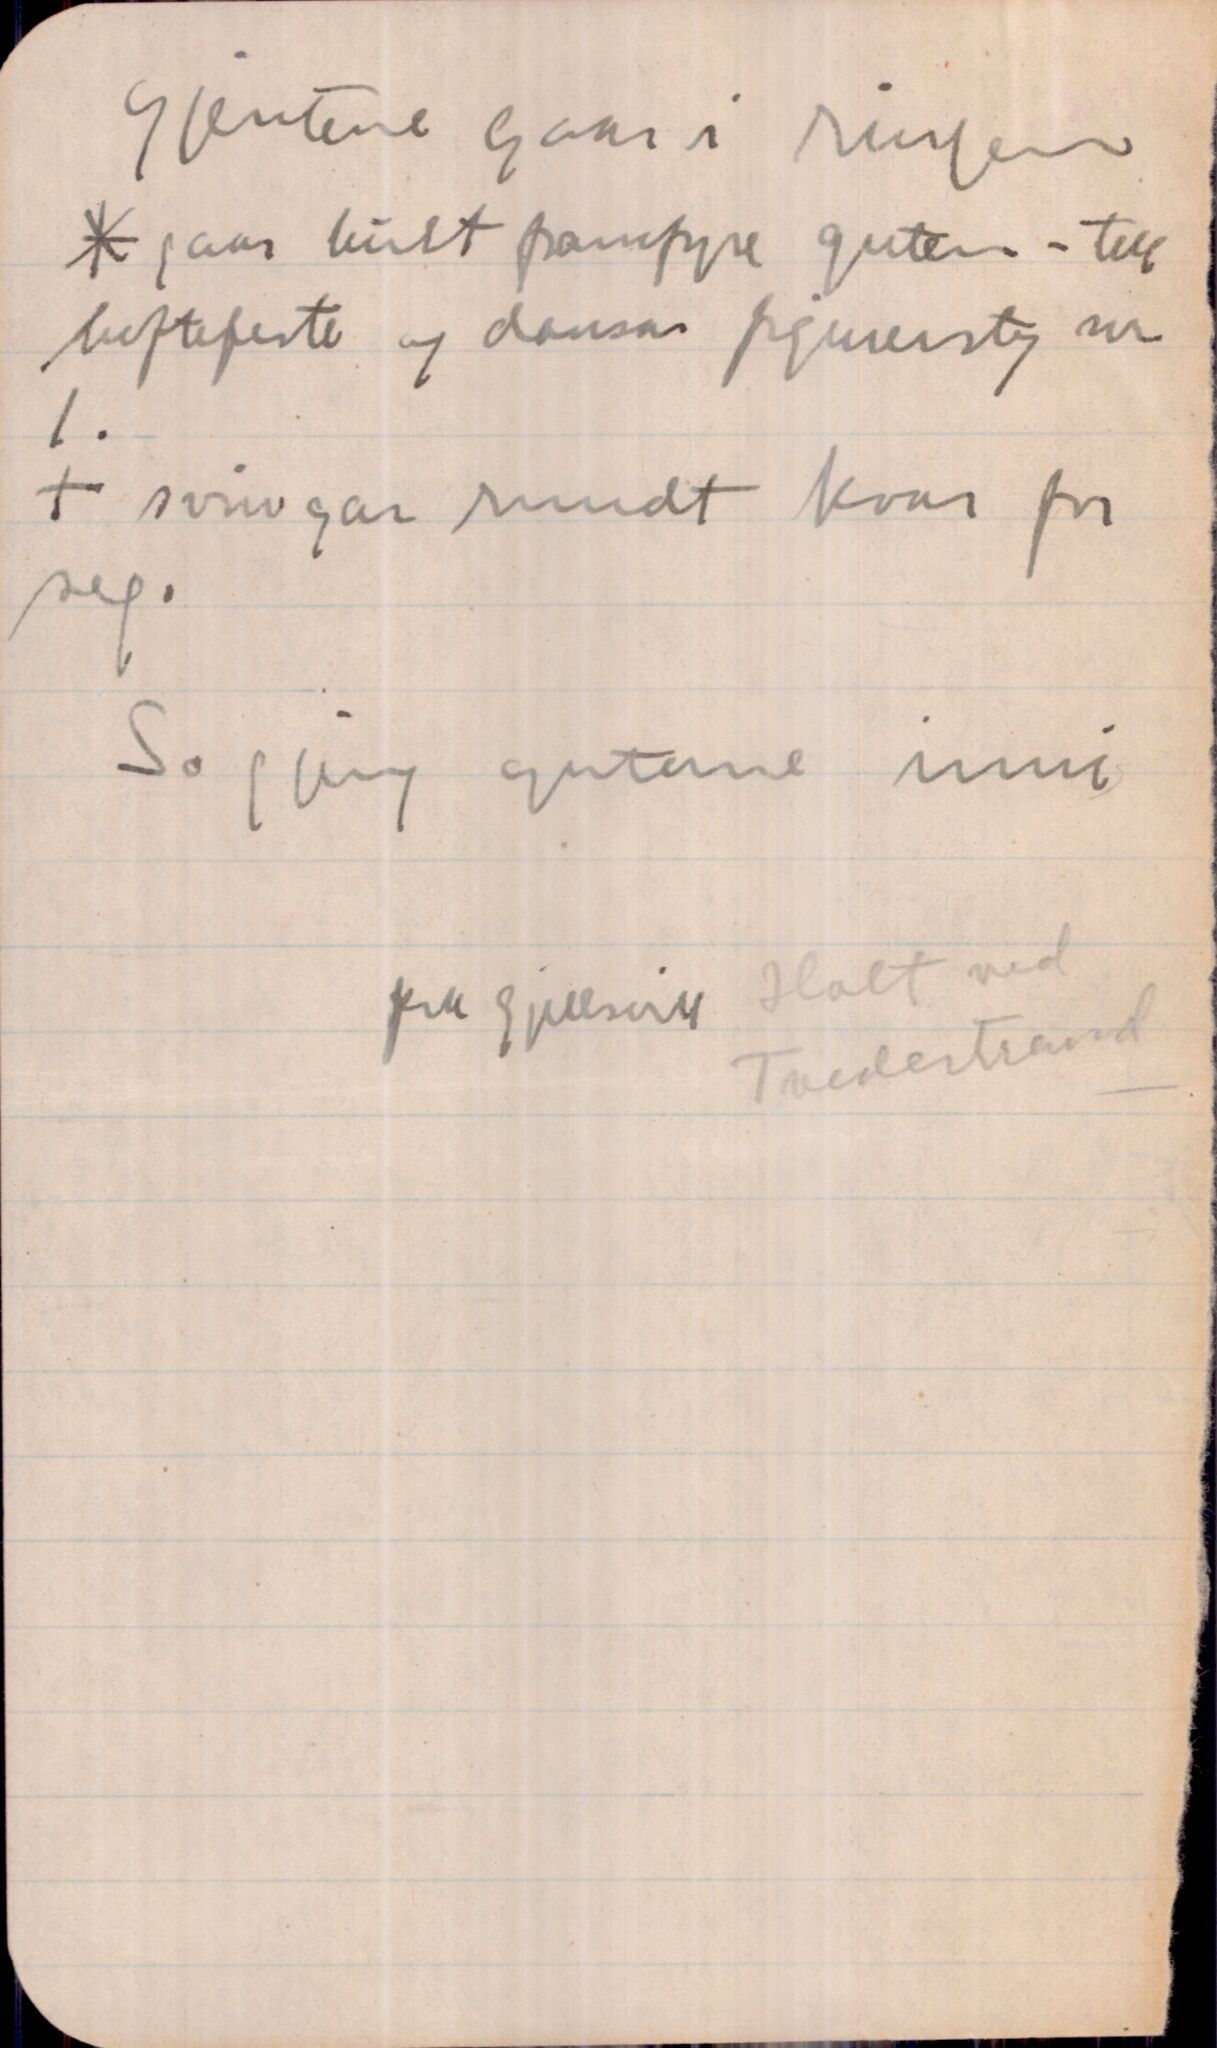 Gjentene gaar i ringen
* gaar burt framfyre guten - tek
huftefeste og dansar som
1.
+ svingar rundt kvar for
seg.
So gjeng gutane inni
fru Holt ved
Tvedestrand